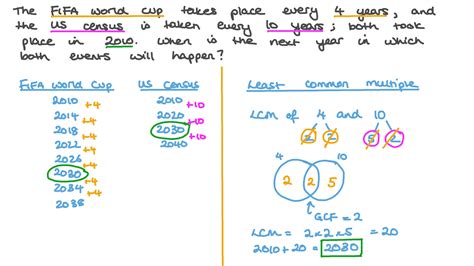 The FIFA world cup takes place every 4 years, and
the US census is taken every 10 years; both took
place in 2010. When is the next year in which
both events will happen?
FIFA World Cup
2010 +4
2014 +4
2018 +4
2022 +4
2026 +4
2030 +4
2034 +4
2038
US Census
2010 +10
2020 +10
2030 +10
2040
Least common multiple
LCM of 4 and 10
2 2 5 2
4 10
2 2 5
GCF = 2
LCM = 2 x 2 x 5 = 20
2010 + 20 = 2030